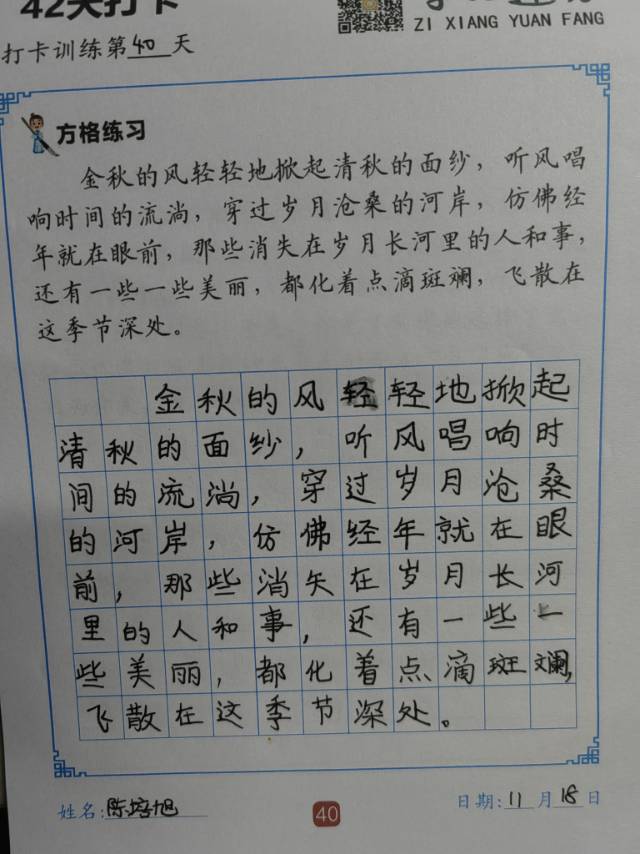 42天打卡
ZI XIANG YUAN FANG
打卡训练第40天
方格练习
金秋的风轻轻地掀起清秋的面纱，听风唱
响时间的流淌，穿过岁月沧桑的河岸，仿佛经
年就在眼前，那些消失在岁月长河里的人和事，
还有一些一些美丽，都化着点滴斑斓，飞散在
这季节深处。
金秋的风轻轻地掀起
清秋的面纱，听风唱响时
间的流淌，穿过岁月沧桑
的河岸，仿佛经年就在眼
前，那些消失在岁月长河
里的人和事，还有一些一
些美丽，都化着点滴斑斓，
飞散在这季节深处。
姓名：陈培旭
40
日期：11月18日